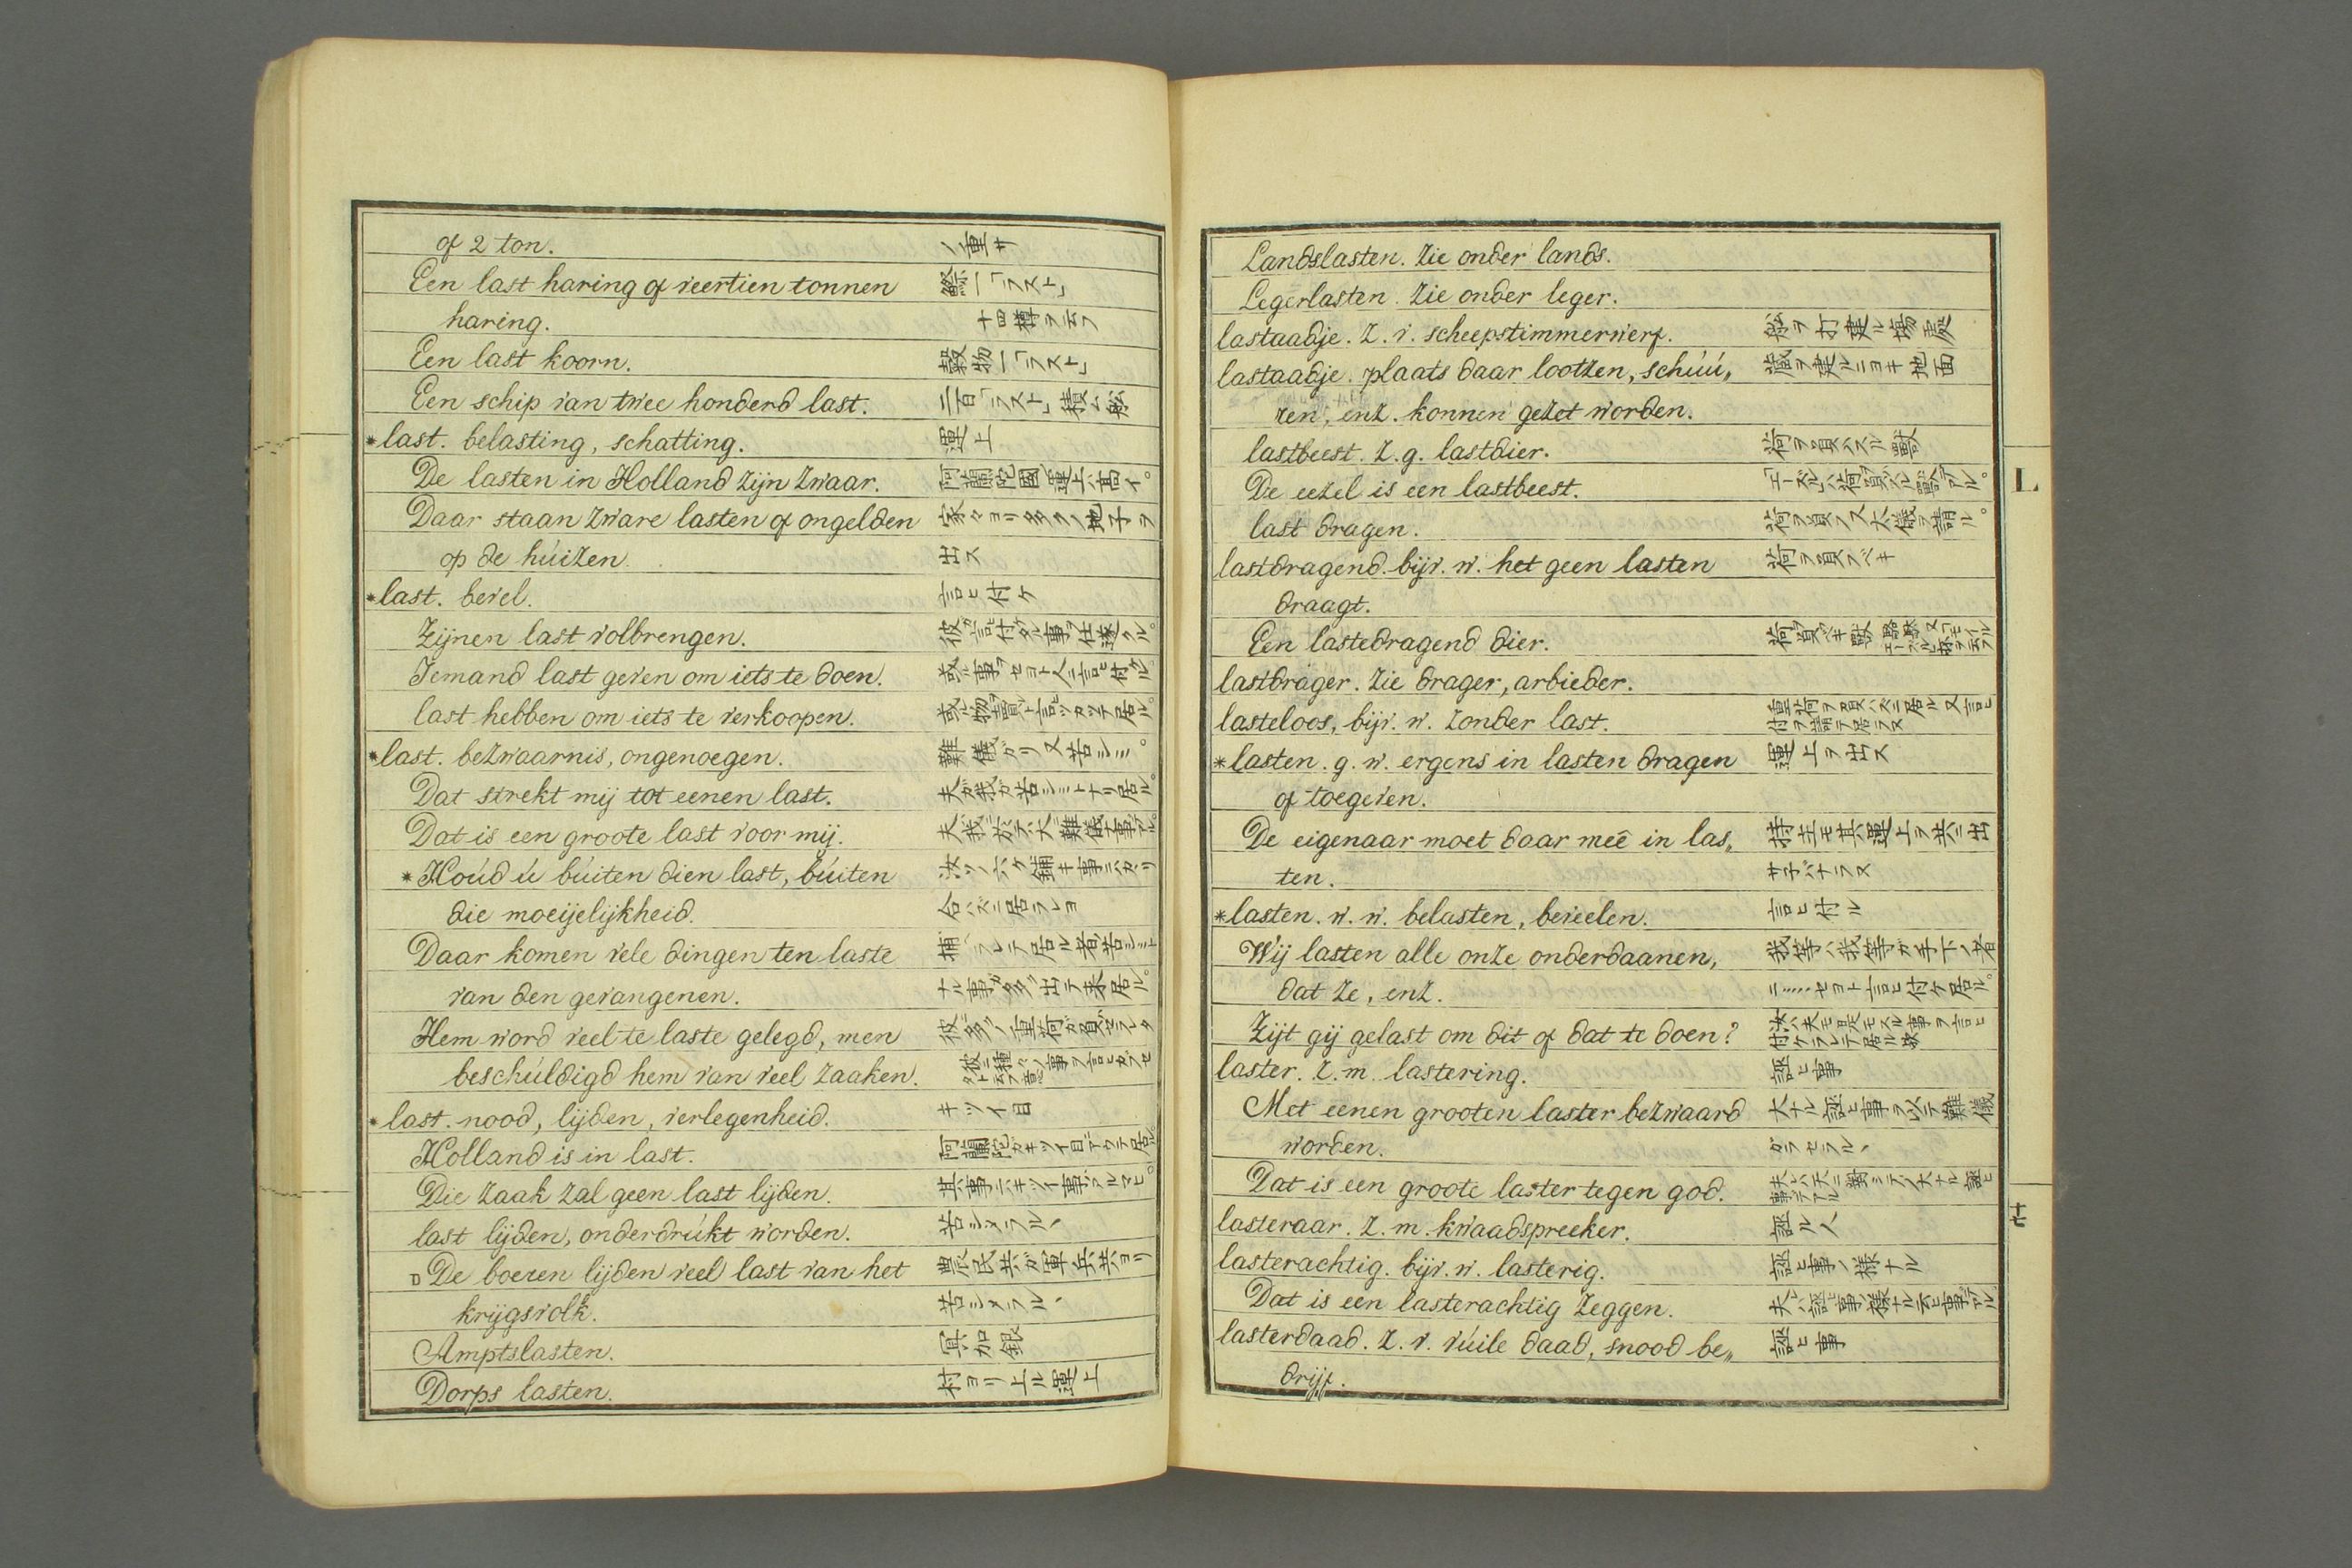 of 2 ton. ノ重サ
Een last haring of veertien tonnen 鰶一「ラスト」
haring. 十四樽ヲ云フ
Een last koorn. 穀物一「ラスト」
Een schip van twee honderd last. 二百「ラスト」積ム舩
*last. belasting, schatting. 運上
De lasten in Holland zijn zwaar. 阿蘭陀國ノ運上ハ高イ。
Daar staan zware lasten of ongelden 家々ヨリ多クノ地子ヲ
op de húizen. 出ス
*last. bevel. 言ヒ付ケ
Zijnen last volbrengen. 彼ガ言ヒ付タル事ヲ仕遂クル。
Iemand last geven om iets te doen. 或ル事ヲセヨト人ニ言ヒ付ケル。
last hebben om iets te verkoopen. 或ル物ヲ賣レト言ヒツカツテ居ル。
*last. bezwaarnis, ongenoegen. 難儀ガリ又苦シミ。
Dat strekt mij tot eenen last. 夫ガ我ガ苦シミトナリ居ル。
Dat is een groote last voor mij. 夫ハ我ニ於テハ大ヒ難儀ナ事デアル。
*Hoúd ú búiten dien last, búiten
die moeijelijkheid. 合ハズニ居ラレヨ
Daar komen vele dingen ten laste 捕ヘラレテ居ル者ノ苦シミト
van den gevangenen. ナル事ガ多ク出テ来居ル。
Hem word veel te laste gelegd, men 彼ハ多クノ重荷ガ負ハセラレタ
beschúldigd hem van veel zaaken.
*last. nood, lijden, verlegenheid. キツイ目
Holland is in last. 阿蘭陀ガキツイ目デアウテ居ル。
Die zaak zal geen last lijden. 其事ニハキツイ事ハアルマヒ。
last lijden, onderdrúkt worden. 苦シメラルヽ
□De boeren lijden veel last van het 農民共ガ軍兵共ヨリ
krijgsvolk. 苦シメラルヽ
Amptslasten. 冥加銀
Dorps lasten. 村ヨリ上ル運上
Landslasten. Zie onder lands.
Legerlasten. Zie onder leger.
lastaadje. z. v. scheepstimmerwerf. 舩ヲ打建ル場處
lastaadje. plaats daar lootzen, schúú„ 蔵ヲ建ルニヨキ地面
ren, enz. konnen gezet worden.
lastbeest. z. g. lastdier. 荷ヲ負ハスル獸
De eezel is een lastbeest. 「エーズル」ハ荷ヲ負ハスル獸デアル。
last dragen. 荷ヲ負フ又大儀ヲ請ル。
lastdragend. bijv. w. het geen lasten 荷ヲ負フベキ
draagt.
Een lastedragend dier. 荷ヲ負フベキ獸
lastdrager. Zie drager, arbieder.
lasteloos, bijv. w. zonder last. 重荷ヲ負ハズニ居ル又言ヒ付ヲ請テ居ラヌ
*lasten. g. w. ergens in lasten dragen 運上ヲ出ス
of toegeven.
De eigenaar moet daar meê in las„ 持主モ其運上ヲ共ニ出
ten. サ子バナラヌ
*lasten. w. w. belasten, beveelen. 言ヒ付ル
Wij lasten alle onze onderdaanen, 我等ハ我等ガ手下ノ者
dat ze, enz. ニ……セヨト言ヒ付ケ居ル。
Zijt gij gelast om dit of dat te doen? 汝ハ夫モ是モスル事ヲ言ヒ付ケラレテ居ル歟
laster. z. m. lastering. 誣ヒ事
Met eenen grooten laster bezwaard 大ナル誣ヒ事ヲ以テ難儀
worden. ガラセラルヽ
Dat is een groote laster tegen god. 夫レハ天ニ對シテノ大ナル誣ヒ事デアル
lasteraar. z. m. kwaadspreeker. 誣ル人
lasterachtig. bijv. w. lasterig. 誣ヒ事ノ様ナル
Dat is een lasterachtig zeggen. 夫レハ誣ヒ事ノ様ナル云ヒ事デアル
lasterdaad. z. v. vúile daad, snood be„ 誣ヒ事
drijf.
L
六十